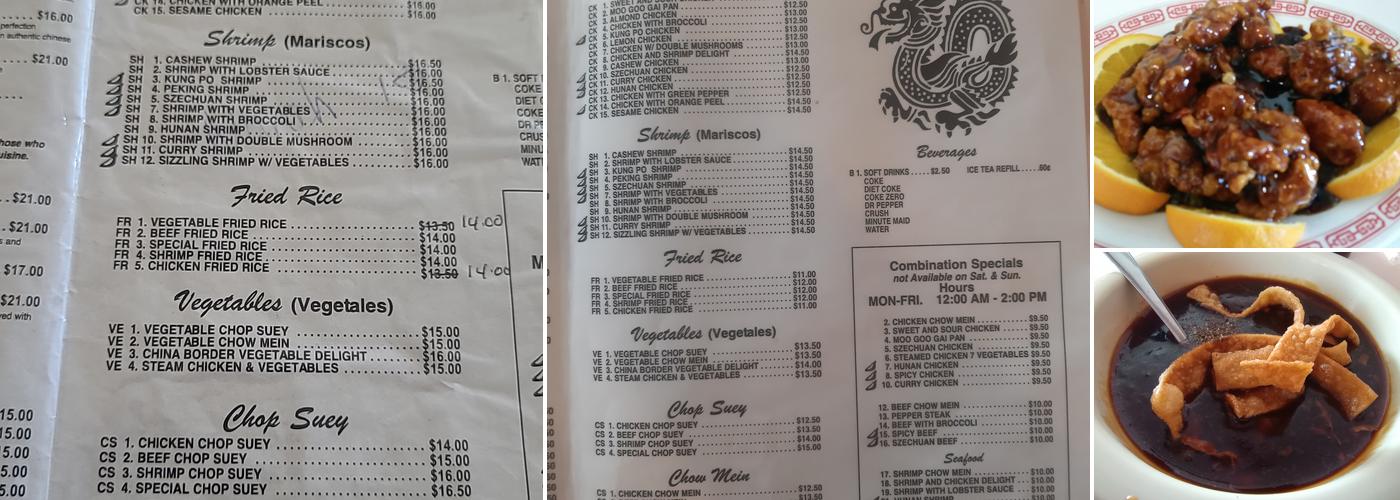 $16.00
perfection
n authentic chinese
$21.00
those who
uisine.
$21.00
$21.00
s and
$17.00
$21.00
ved with
15.00
15.00
CK 14. CHICKEN WITH ORANGE PEEL $16.00
CK 15. SESAME CHICKEN $16.00
Shrimp (Mariscos)
SH 1. CASHEW SHRIMP $16.50
SH 2. SHRIMP WITH LOBSTER SAUCE $16.00
SH 3. KUNG PO SHRIMP $16.50
SH 4. PEKING SHRIMP $16.00
SH 5. SZECHUAN SHRIMP $16.00
SH 7. SHRIMP WITH VEGETABLES $16.00
SH 8. SHRIMP WITH BROCCOLI $16.00
SH 9. HUNAN SHRIMP $16.00
SH 10. SHRIMP WITH DOUBLE MUSHROOM $16.00
SH 11. CURRY SHRIMP $16.00
SH 12. SIZZLING SHRIMP W/ VEGETABLES $16.00
Fried Rice
FR 1. VEGETABLE FRIED RICE $13.50 14.00
FR 2. BEEF FRIED RICE $14.00
FR 3. SPECIAL FRIED RICE $14.00
FR 4. SHRIMP FRIED RICE $14.00
FR 5. CHICKEN FRIED RICE $13.50 14.00
Vegetables (Vegetales)
VE 1. VEGETABLE CHOP SUEY $15.00
VE 2. VEGETABLE CHOW MEIN $15.00
VE 3. CHINA BORDER VEGETABLE DELIGHT $16.00
VE 4. STEAM CHICKEN & VEGETABLES $15.00
Chop Suey
CS 1. CHICKEN CHOP SUEY $14.00
CS 2. BEEF CHOP SUEY $15.00
CS 3. SHRIMP CHOP SUEY $16.00
CS 4. SPECIAL CHOP SUEY $16.50
B 1. SOFT
COKE
DIET
COKE
DR PE
CRUS
MINU
WAT
CK 2. MOO GOO GAI PAN $13.00
CK 3. ALMOND CHICKEN $12.50
CK 4. CHICKEN WITH BROCCOLI
CK 5. KUNG PO CHICKEN
CK 6. LEMON CHICKEN
CK 7. CHICKEN W/ DOUBLE MUSHROOMS
CK 8. CHICKEN AND SHRIMP DELIGHT
CK 9. CURRY CHICKEN
CK 10. SZECHUAN CHICKEN
CK 11. CURRY CHICKEN
CK 12. HUNAN CHICKEN
CK 13. CHICKEN WITH GREEN PEPPER $12.50
CK 14. CHICKEN WITH ORANGE PEEL $14.50
CK 15. SESAME CHICKEN $14.50
Shrimp (Mariscos)
SH 1. CASHEW SHRIMP $14.50
SH 2. SHRIMP WITH LOBSTER SAUCE $14.50
SH 3. KUNG PO SHRIMP $14.50
SH 4. PEKING SHRIMP $14.50
SH 5. SZECHUAN SHRIMP $14.50
SH 7. SHRIMP WITH VEGETABLES $14.50
SH 8. SHRIMP WITH BROCCOLI $14.50
SH 9. HUNAN SHRIMP $14.50
SH 10. SHRIMP WITH DOUBLE MUSHROOM $14.50
SH 11. CURRY SHRIMP $14.50
SH 12. SIZZLING SHRIMP W/ VEGETABLES $14.50
Fried Rice
FR 1. VEGETABLE FRIED RICE $11.00
FR 2. BEEF FRIED RICE $12.00
FR 3. SPECIAL FRIED RICE $12.00
FR 4. SHRIMP FRIED RICE $12.00
FR 5. CHICKEN FRIED RICE $11.00
Vegetables (Vegetales)
VE 1. VEGETABLE CHOP SUEY $13.50
VE 2. VEGETABLE CHOW MEIN $13.50
VE 3. CHINA BORDER VEGETABLE DELIGHT $14.00
VE 4. STEAM CHICKEN & VEGETABLES $13.50
Chop Suey
CS 1. CHICKEN CHOP SUEY $12.50
CS 2. BEEF CHOP SUEY $13.50
CS 3. SHRIMP CHOP SUEY $14.00
CS 4. SPECIAL CHOP SUEY $15.00
Chow Mein
CM 1. CHICKEN CHOW MEIN $12.50
Beverages
B 1. SOFT DRINKS $2.50 ICE TEA REFILL .60¢
COKE
DIET COKE
COKE ZERO
DR PEPPER
CRUSH
MINUTE MAID
WATER
Combination Specials
not Available on Sat. & Sun.
Hours
MON-FRI. 12:00 AM - 2:00 PM
2. CHICKEN CHOW MEIN $9.50
3. SWEET AND SOUR CHICKEN $9.50
4. MOO GOO GAI PAN $9.50
5. SZECHUAN CHICKEN $9.50
6. STEAMED CHICKEN 7 VEGETABLES $9.50
7. HUNAN CHICKEN $9.50
8. SPICY CHICKEN $9.50
10. CURRY CHICKEN $9.50
12. BEEF CHOW MEIN $10.00
13. PEPPER STEAK $10.00
14. BEEF WITH BROCCOLI $10.00
15. SPICY BEEF $10.00
16. SZECHUAN BEEF $10.00
Seafood
17. SHRIMP CHOW MEIN $10.00
18. SHRIMP AND CHICKEN DELIGHT $10.00
19. SHRIMP WITH LOBSTER SAUCE $10.00